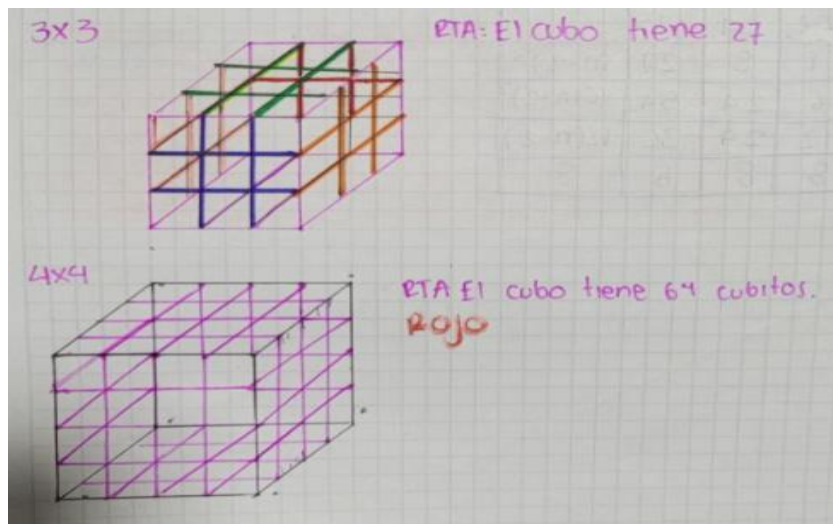 3x3
RTA: El cubo tiene 27
4x4
RTA El cubo tiene 64 cubitos.
ROJO